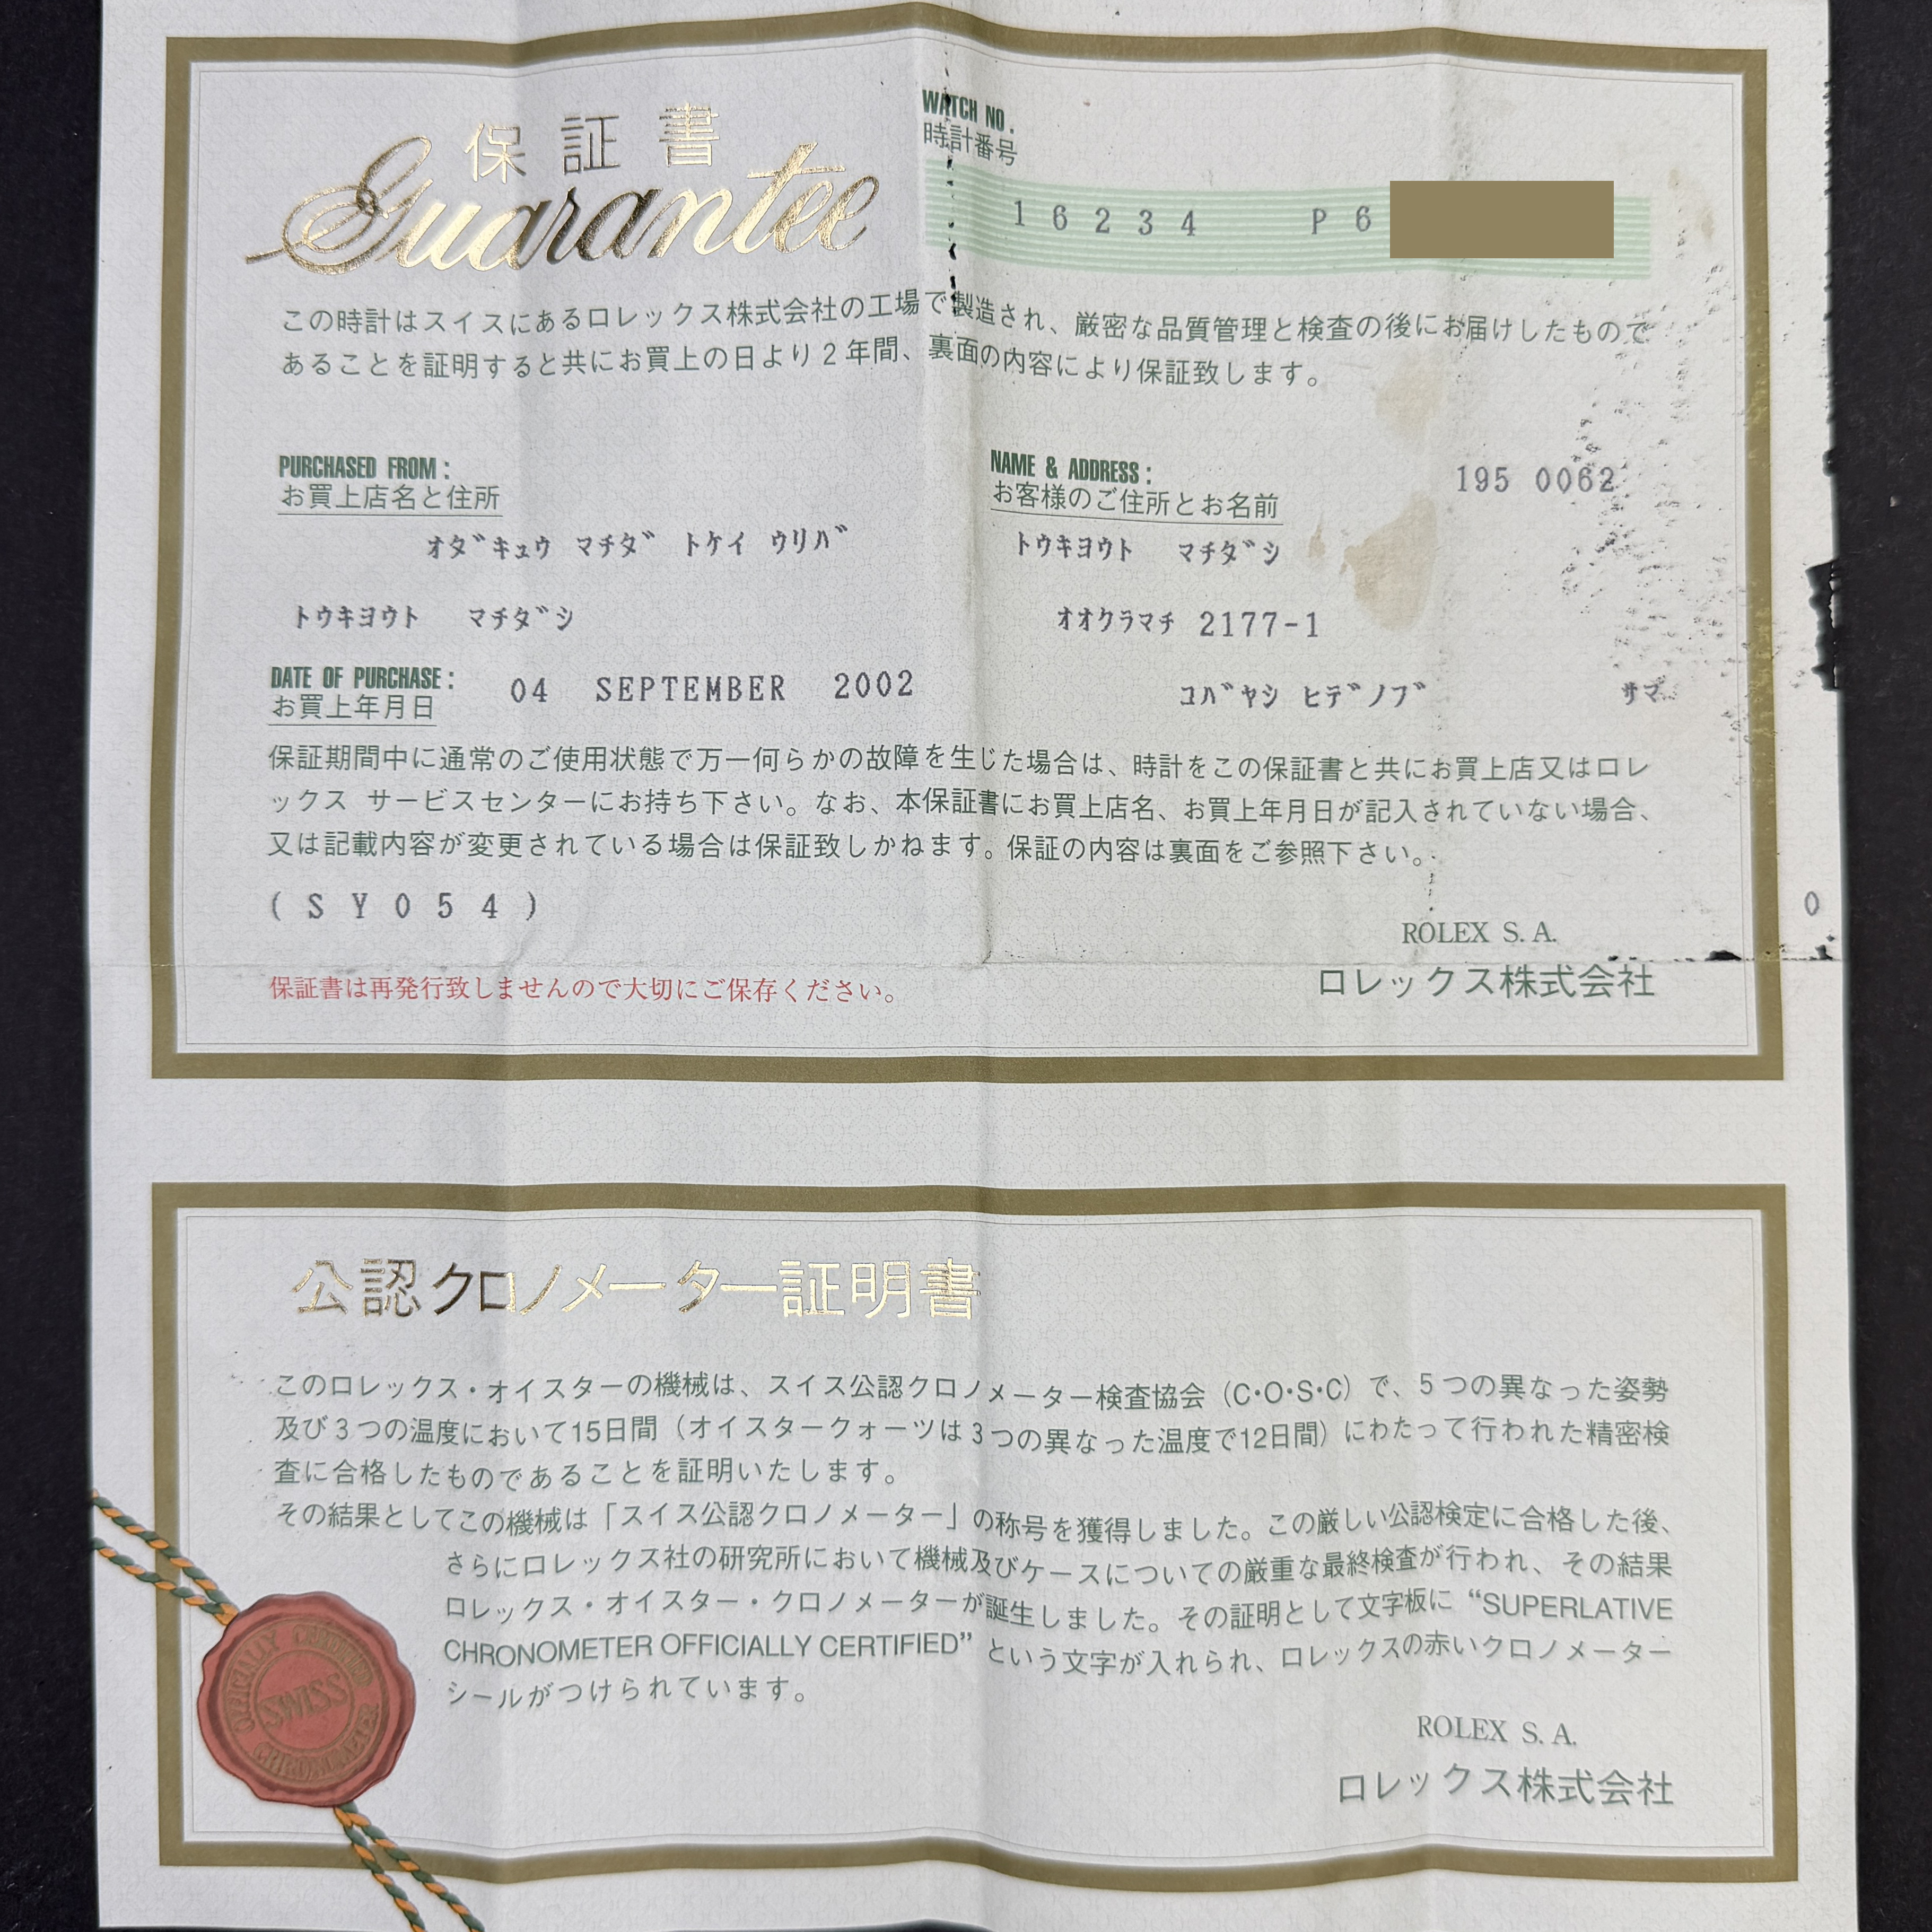 保証書
Guarantee
WATCH NO.
時計番号
16234 P6
この時計はスイスにあるロレックス株式会社の工場で製造され、厳密な品質管理と検査の後にお届けしたもので
あることを証明すると共にお買上の日より2年間、裏面の内容により保証致します。
PURCHASED FROM:
お買上店名と住所
オダキュウ マチダ トケイ ウリバ
トウキヨウト マチダシ
DATE OF PURCHASE:
お買上年月日
04 SEPTEMBER 2002
NAME & ADDRESS:
お客様のご住所とお名前
195 0062
トウキヨウト マチダシ
オオクラマチ 2177-1
コバヤシ ヒデノブ サマ
保証期間中に通常のご使用状態で万一何らかの故障を生じた場合は、時計をこの保証書と共にお買上店又はロレ
ックス サービスセンターにお持ち下さい。なお、本保証書にお買上店名、お買上年月日が記入されていない場合、
又は記載内容が変更されている場合は保証致しかねます。保証の内容は裏面をご参照下さい。
(SY054)
0
ROLEX S.A.
ロレックス株式会社
保証書は再発行致しませんので大切にご保存ください。
公認クロノメーター証明書
このロレックス・オイスターの機械は、スイス公認クロノメーター検査協会(C・O・S・C)で、5つの異なった姿勢
及び3つの温度において15日間(オイスタークォーツは3つの異なった温度で12日間)にわたって行われた精密検
査に合格したものであることを証明いたします。
その結果としてこの機械は「スイス公認クロノメーター」の称号を獲得しました。この厳しい公認検定に合格した後、
さらにロレックス社の研究所において機械及びケースについての厳重な最終検査が行われ、その結果
ロレックス・オイスター・クロノメーターが誕生しました。その証明として文字板に“SUPERLATIVE
CHRONOMETER OFFICIALLY CERTIFIED”という文字が入れられ、ロレックスの赤いクロノメーター
シールがつけられています。
OFFICIALLY CERTIFIED
SWISS
CHRONOMETER
ROLEX S.A.
ロレックス株式会社